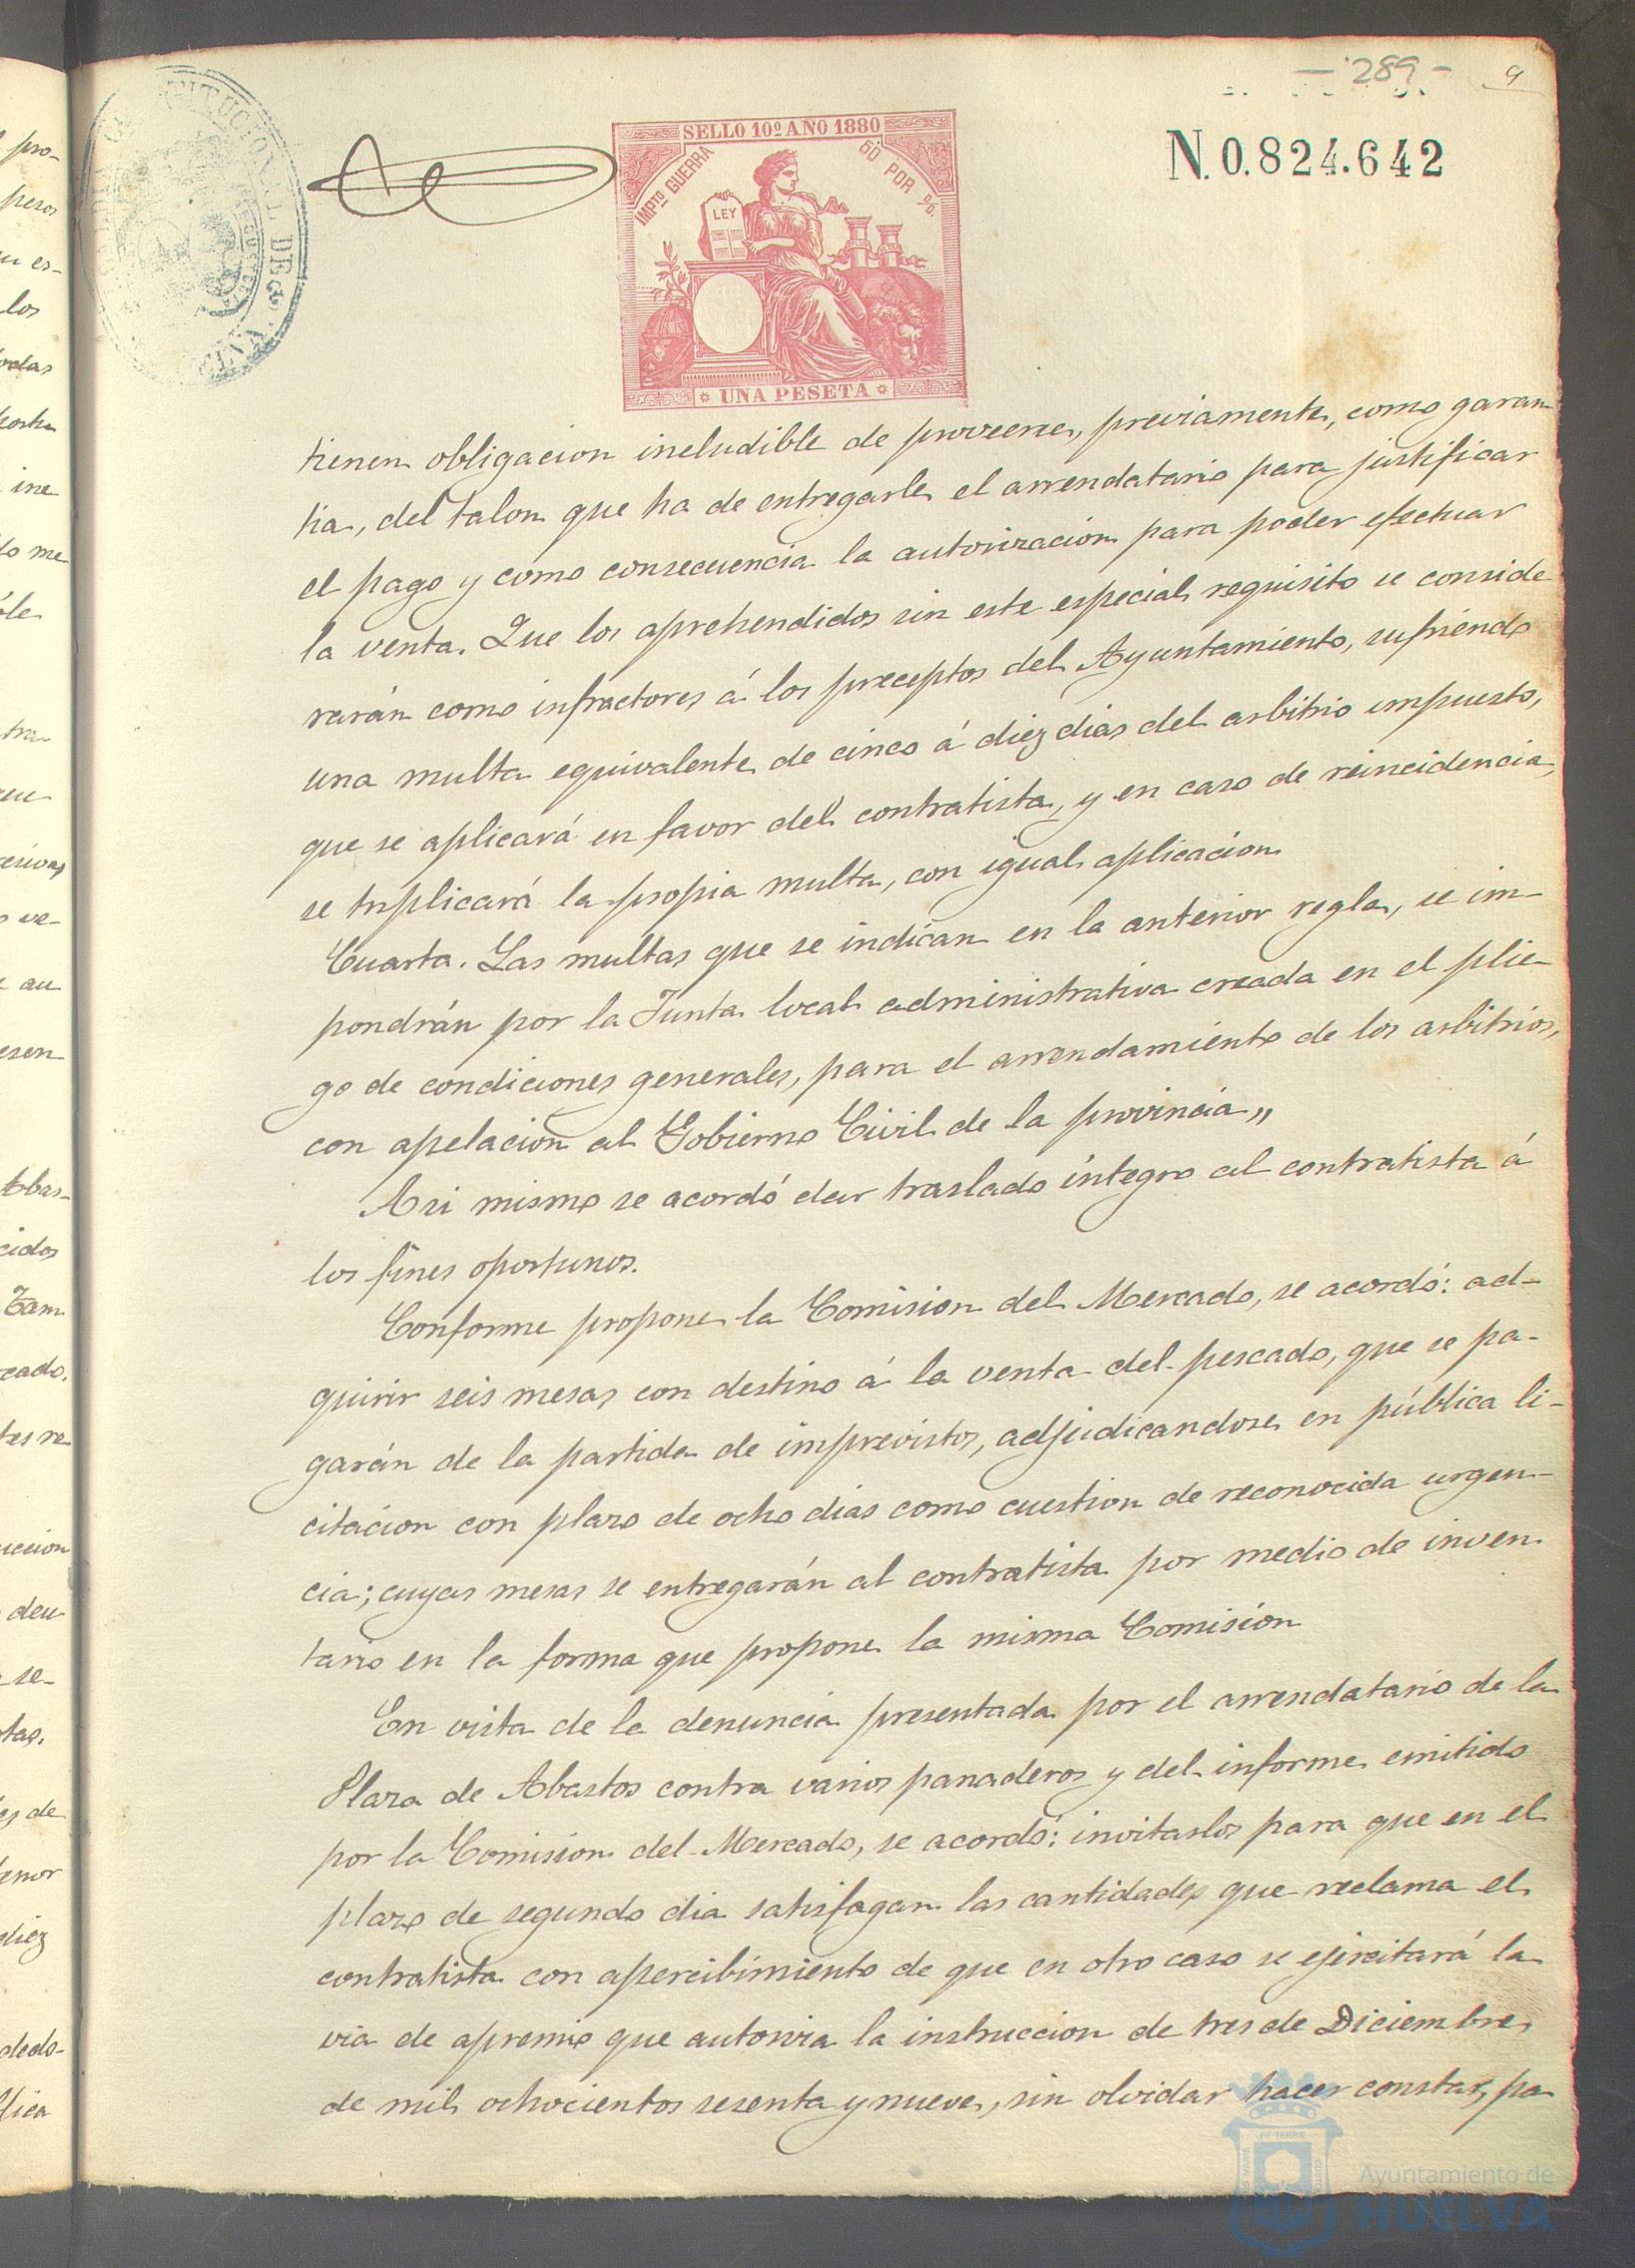 - 289 - 9
N. 0.824.642
SELLO 10º AÑO 1880
IMPTO GUERRA
60 POR %.
LEY
UNA PESETA
tienen obligacion ineludible de proveerse, previamente, como garan
tia, del talon que ha de entregarle el arrendatario para justificar
el pago y como consecuencia la autorizacion para poder efectuar
la venta. Que los aprehendidos sin este especial requisito se conside
rarán como infractores á los preceptos del Ayuntamiento, sufriendo
una multa equivalente de cinco á diez dias del arbitrio impuesto,
que se aplicará en favor del contratista, y en caso de reincidencia,
se triplicará la propia multa, con igual aplicacion
Cuarta. Las multas que se indican en la anterior regla, se im-
pondrán por la Junta local administrativa creada en el plie-
go de condiciones generales, para el arrendamiento de los arbitrios,
con apelacion al Gobierno Civil de la provincia„
Asi mismo se acordó dar traslado íntegro al contratista á
los fines oportunos.
Conforme propone la Comision del Mercado, se acordó: ad-
quirir seis mesas con destino á la venta del pescado, que se pa-
garán de la partida de imprevistos, adjudicandose en pública li-
citacion con plazo de ocho dias como cuestion de reconocida urgen-
cia; cuyas mesas se entregarán al contratista por medio de inven-
tario en la forma que propone la misma Comision
En vista de la denuncia presentada por el arrendatario de la
Plaza de Abastos contra varios panaderos y del informe emitido
por la Comision del Mercado, se acordó: invitarlos para que en el
plazo de segundo dia satisfagan las cantidades que reclama el
contratista con apercibimiento de que en otro caso se ejercitará la
via de apremio que autoriza la instruccion de tres de Diciembre
de mil ochocientos sesenta y nueve, sin olvidar hacer constar, pa
Ayuntamiento de
HUELVA